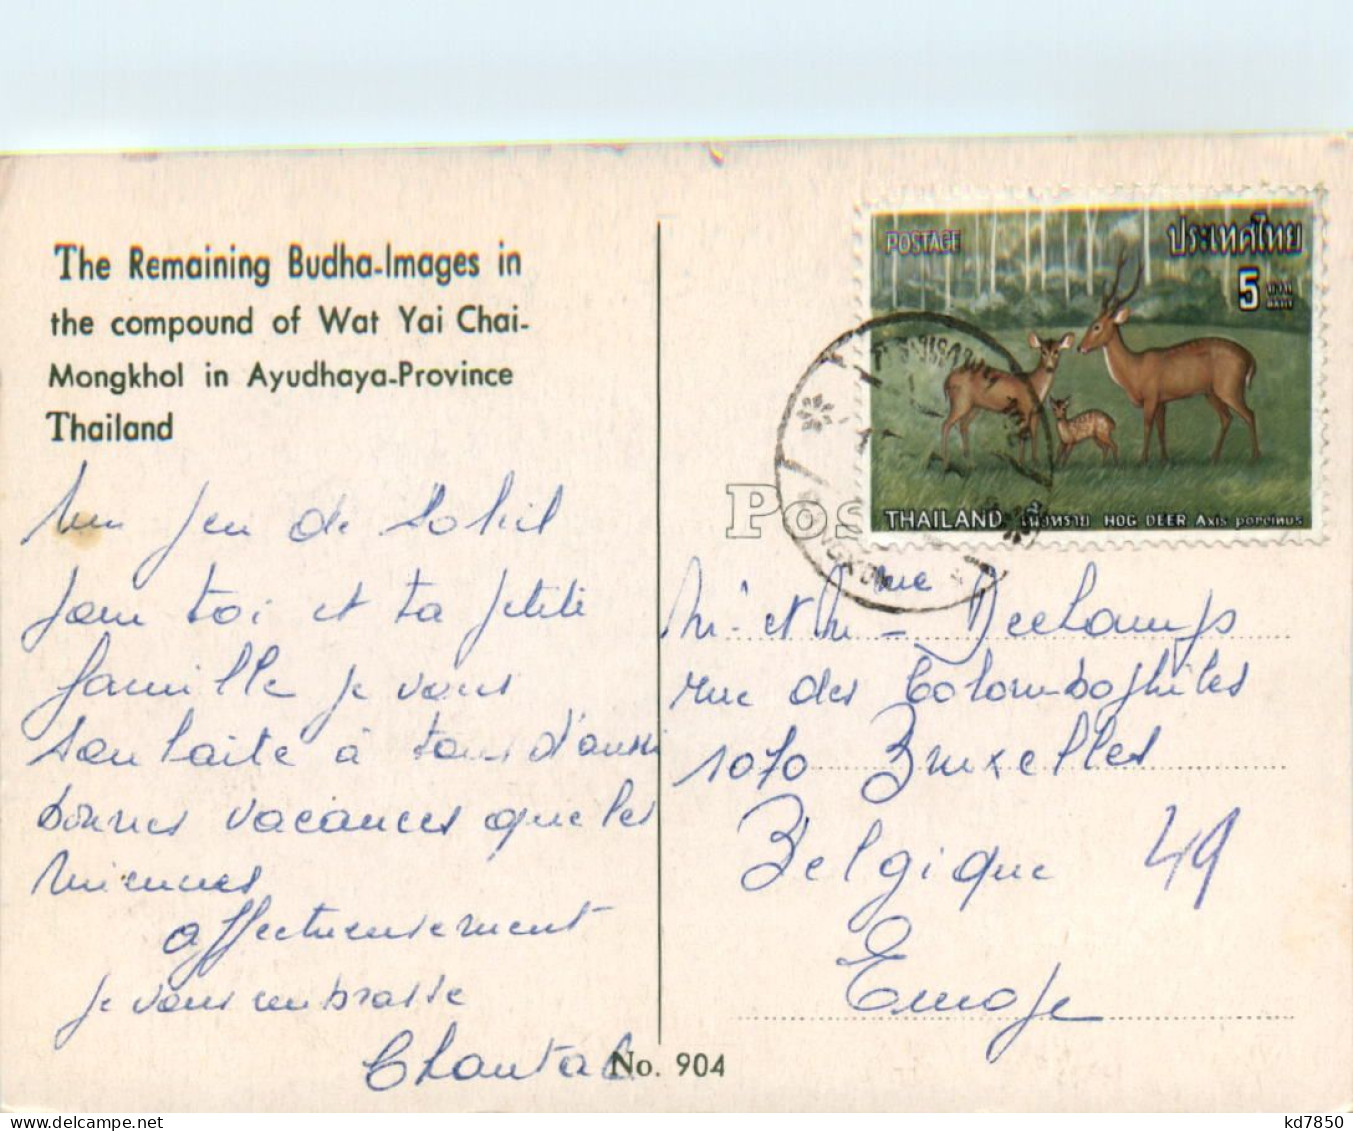 The Remaining Budha-Images in
the compound of Wat Yai Chai-
Mongkhol in Ayudhaya-Province
Thailand
Un peu de soleil
pour toi et ta petite
famille je vous
souhaite à tous d'aussi
bonnes vacances que les
miennes
affectueusement
je vous embrasse
Chantal
No. 904
POSTAGE
ประเทศไทย
5 บาท
BAHT
THAILAND เนื้อทราย HOG DEER Axis porcinus
Pos
Mr et Mme Dechamps
rue des Colombophiles
1070 Bruxelles
Belgique 49
Europe
kd7850